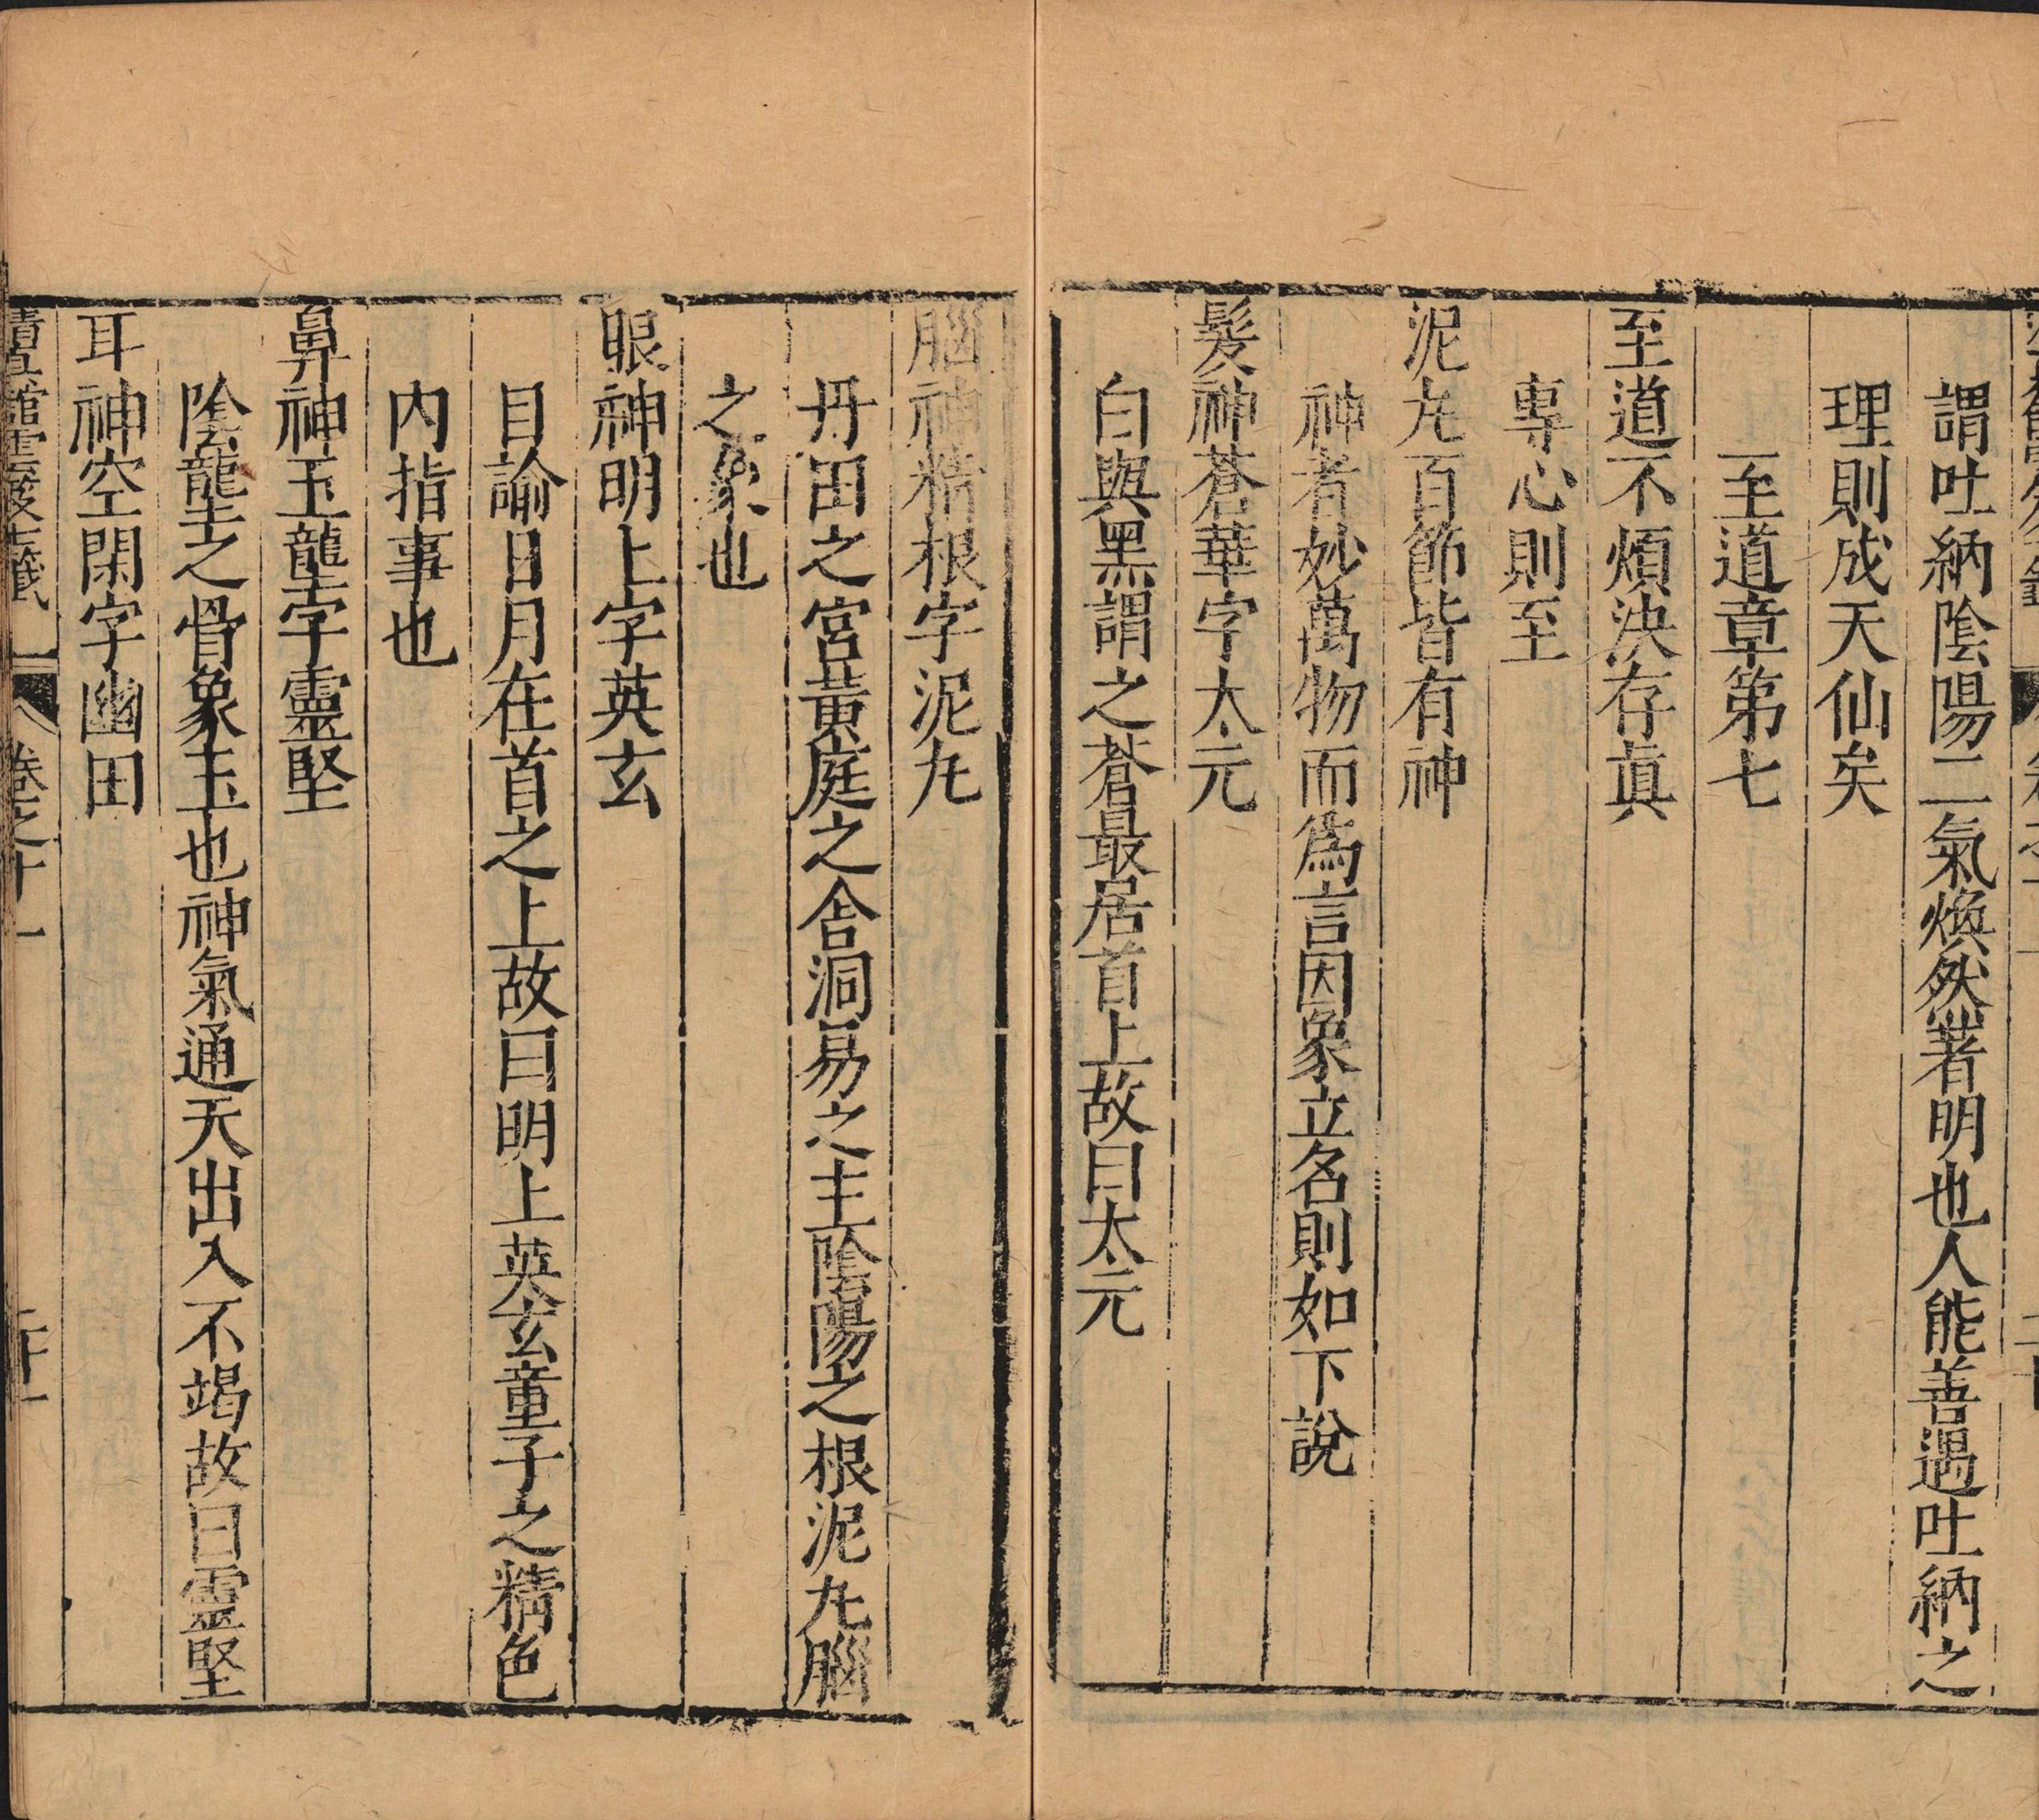 謂吐納陰陽二氣煥然著明也人能善遇吐納之
理則成天仙矣
至道章第七
至道不煩決存眞
專心則至
泥丸百節皆有神
神者妙萬物而爲言因象立名則如下說
髮神蒼華字太元
白與黑謂之蒼最居首上故曰太元
腦神精根字泥丸
丹田之宮黃庭之舍洞易之主陰陽之根泥丸腦
之象也
眼神明上字英玄
目諭日月在首之上故曰明上英玄童子之精色
內指事也
鼻神玉壟字靈堅
陰壟之骨象玉也神氣通天出入不竭故曰靈堅
耳神空閑字幽田
卷之十一